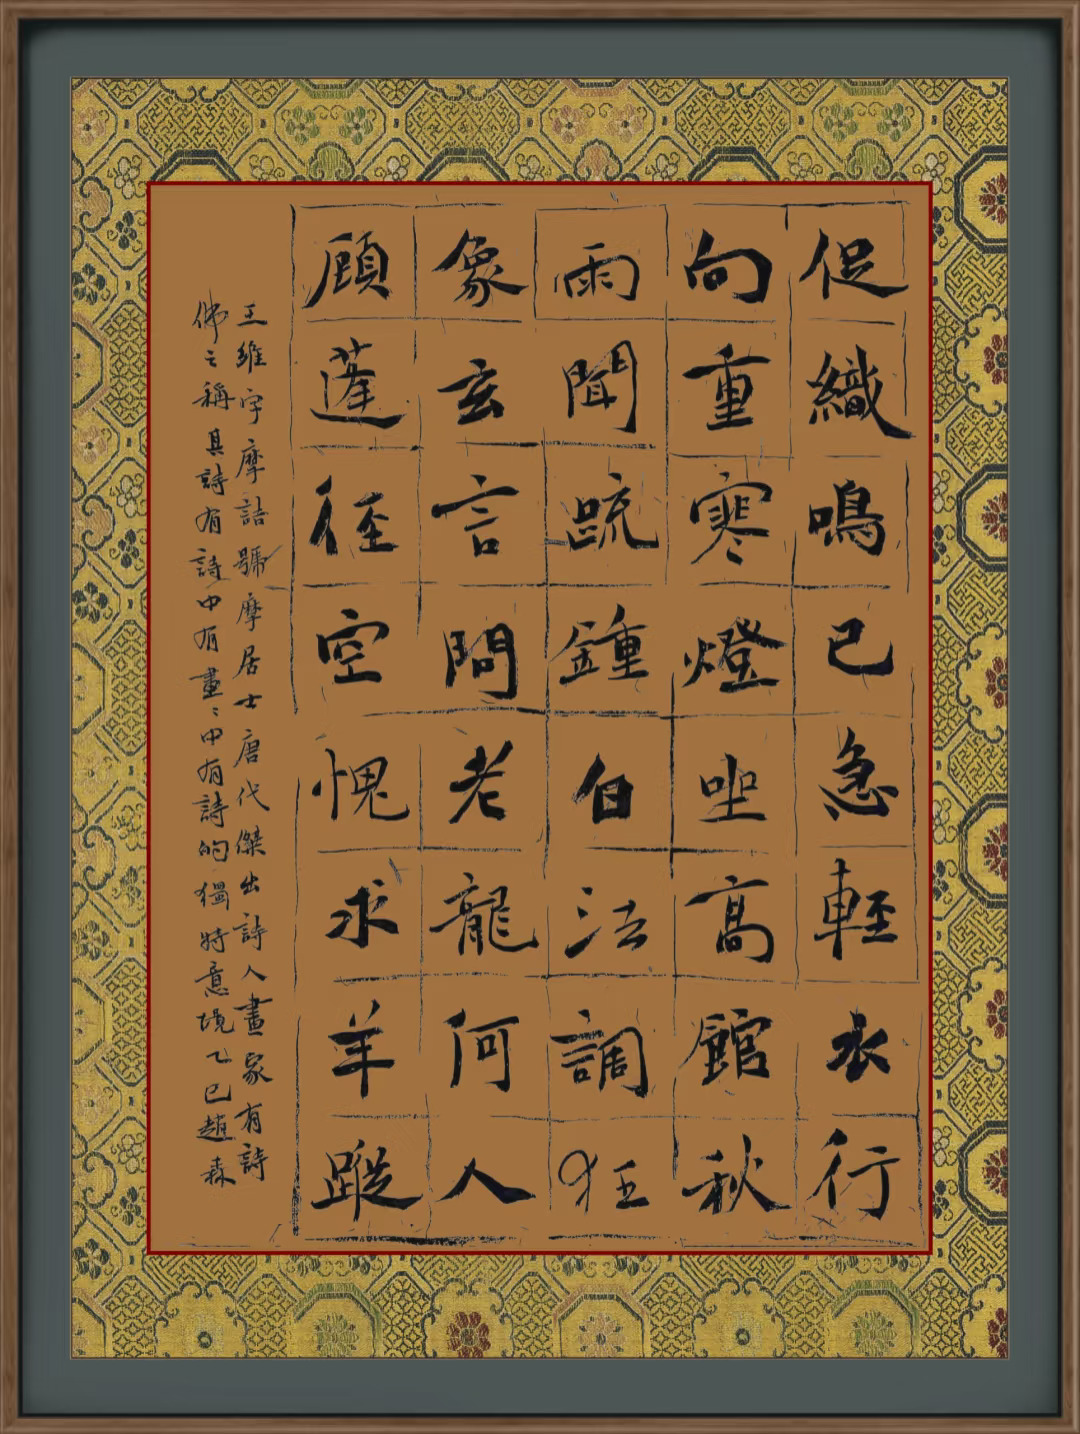 促織鳴已急輕衣行
向重寒燈坐高館秋
雨聞疏鍾白法調狂
象玄言問老龍何人
顧蓬徑空愧求羊蹤
王維字摩詰號摩居士唐代傑出詩人畫家有詩
佛之稱其詩有詩中有畫〻中有詩的獨特意境乙巳趙森